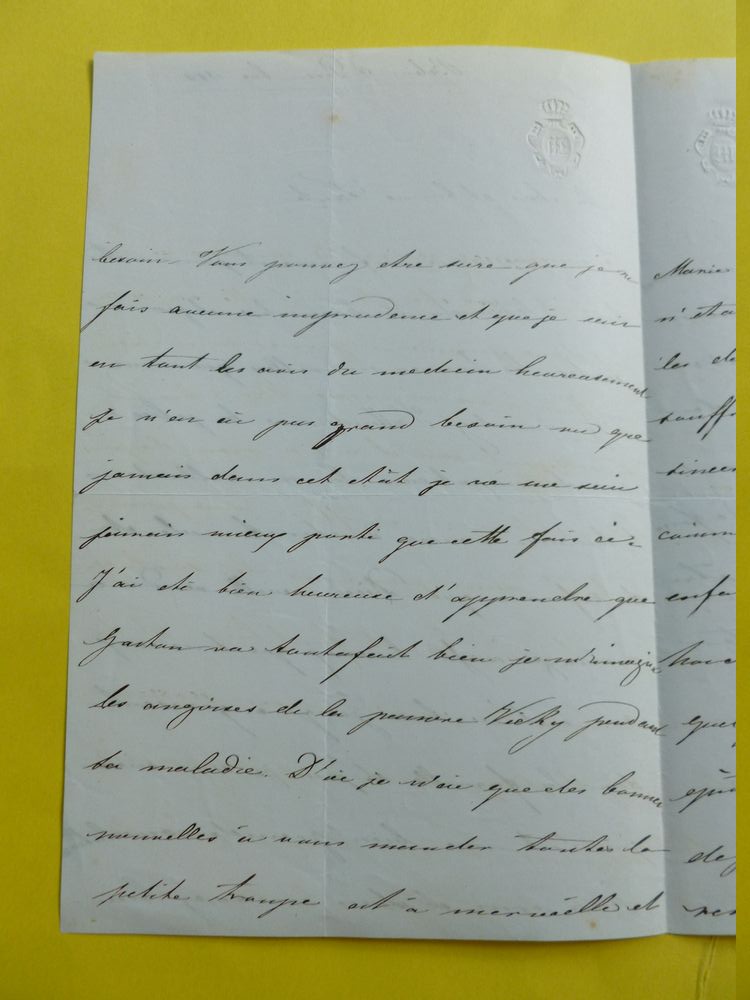 besoin. Vous pouvez etre sure que je ne
fais aucune imprudence et que je suis
en tout les avis du medecin heureusement
Je n'en ai pas grand besoin vu que
jamais dans cet état je ne me suis
jamais mieux porté que cette fois ci.
J'ai été bien heureuse d'apprendre que
Gaston va toutafait bien je m'imagine
les angoises de la pauvre Vicky pendant
sa maladie. D'ici je n'ai que des bonnes
nouvelles à vous mander toutes la
petite troupe est à merveille et
Marie
n'éta
les
souff
sincer
comm
enfa
que